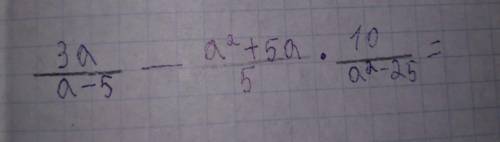 3a/(a-5) — (a²+5a)/5 · 10/(a²-25) =